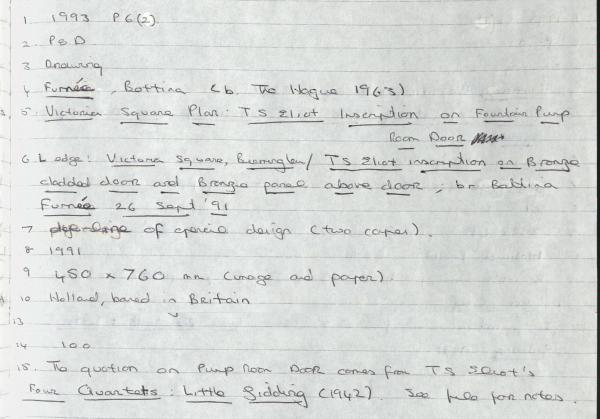 1 1993 P6(2)
2. P&D
3 Drawing
4 Furnée, Bettina (b. The Hague 1963)
5. Victoria Square Plan: TS Eliot Inscription on Fountain Pump
Room Door
6. L edge: Victoria Square, Birmingham / TS Eliot inscription on Bronze
cladded door and Bronze panel above door; br Bettina
Furnée 26 Sept '91
7 of design (two copies).
8 1991
9 480 x 760 mm (image and paper)
10 Holland, based in Britain
13
14 100
15. The quotation on Pump Room Door comes from TS Eliot's
Four Quartets: Little Gidding (1942). See file for notes.